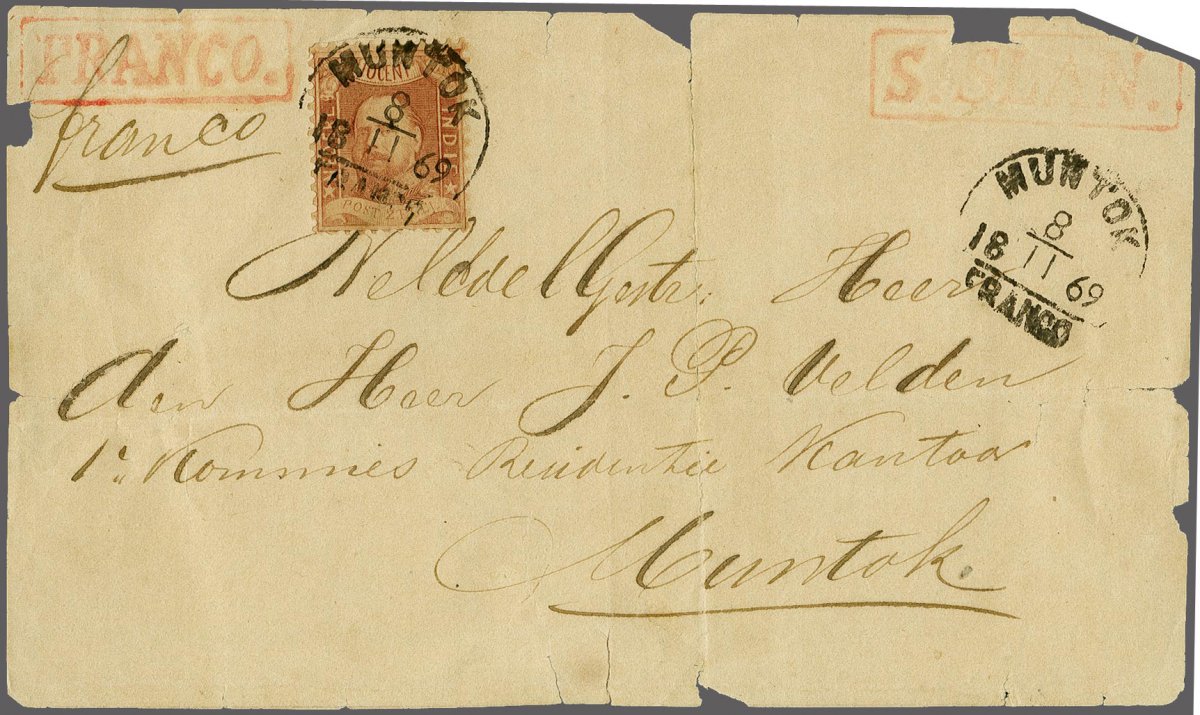 FRANCO.
S.SLAN.
franco
10CENT
INDIE
POSTZEGEL
MUNTOK
8
11
18 69
FRANCO
MUNTOK
8
11
18 69
FRANCO
WelEdel Gestr. Heer
den Heer J. P. Velden
1e Kommies Residentie Kantoor
Muntok.